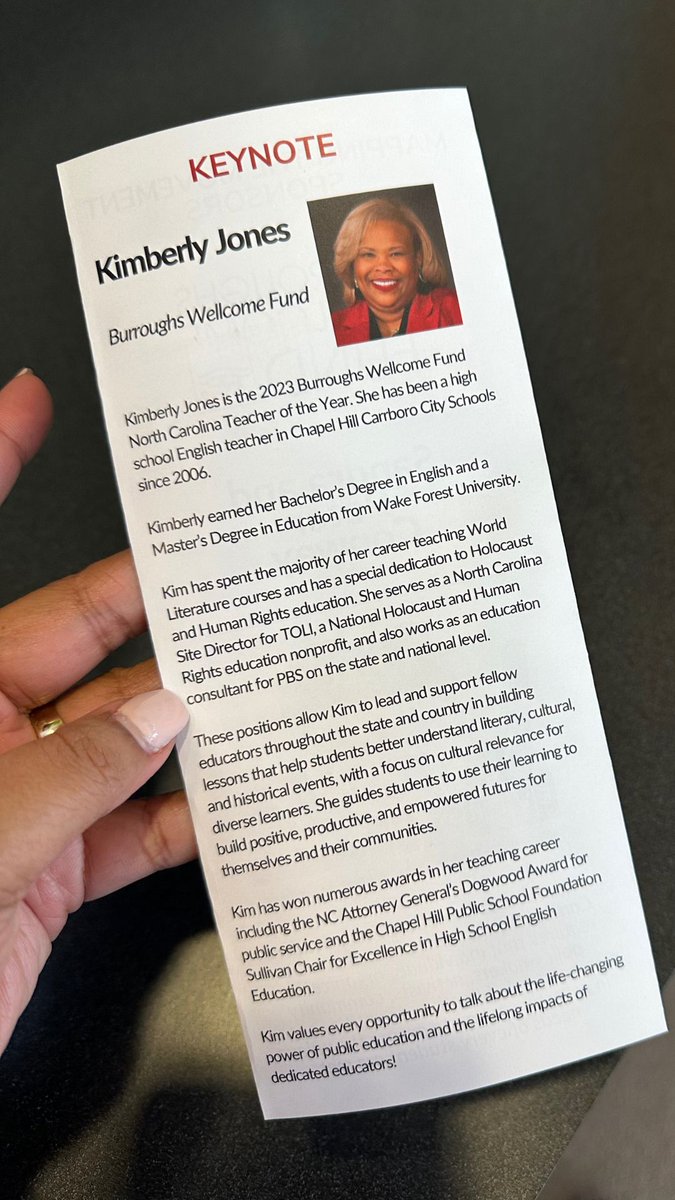 KEYNOTE
Kimberly Jones
Burroughs Wellcome Fund
Kimberly Jones is the 2023 Burroughs Wellcome Fund
North Carolina Teacher of the Year. She has been a high
school English teacher in Chapel Hill Carrboro City Schools
since 2006.
Kimberly earned her Bachelor's Degree in English and a
Master's Degree in Education from Wake Forest University.
Kim has spent the majority of her career teaching World
Literature courses and has a special dedication to Holocaust
and Human Rights education. She serves as a North Carolina
Site Director for TOLI, a National Holocaust and Human
Rights education nonprofit, and also works as an education
consultant for PBS on the state and national level.
These positions allow Kim to lead and support fellow
educators throughout the state and country in building
lessons that help students better understand literary, cultural,
and historical events, with a focus on cultural relevance for
diverse learners. She guides students to use their learning to
build positive, productive, and empowered futures for
themselves and their communities.
Kim has won numerous awards in her teaching career
including the NC Attorney General's Dogwood Award for
public service and the Chapel Hill Public School Foundation
Sullivan Chair for Excellence in High School English
Education.
Kim values every opportunity to talk about the life-changing
power of public education and the lifelong impacts of
dedicated educators!